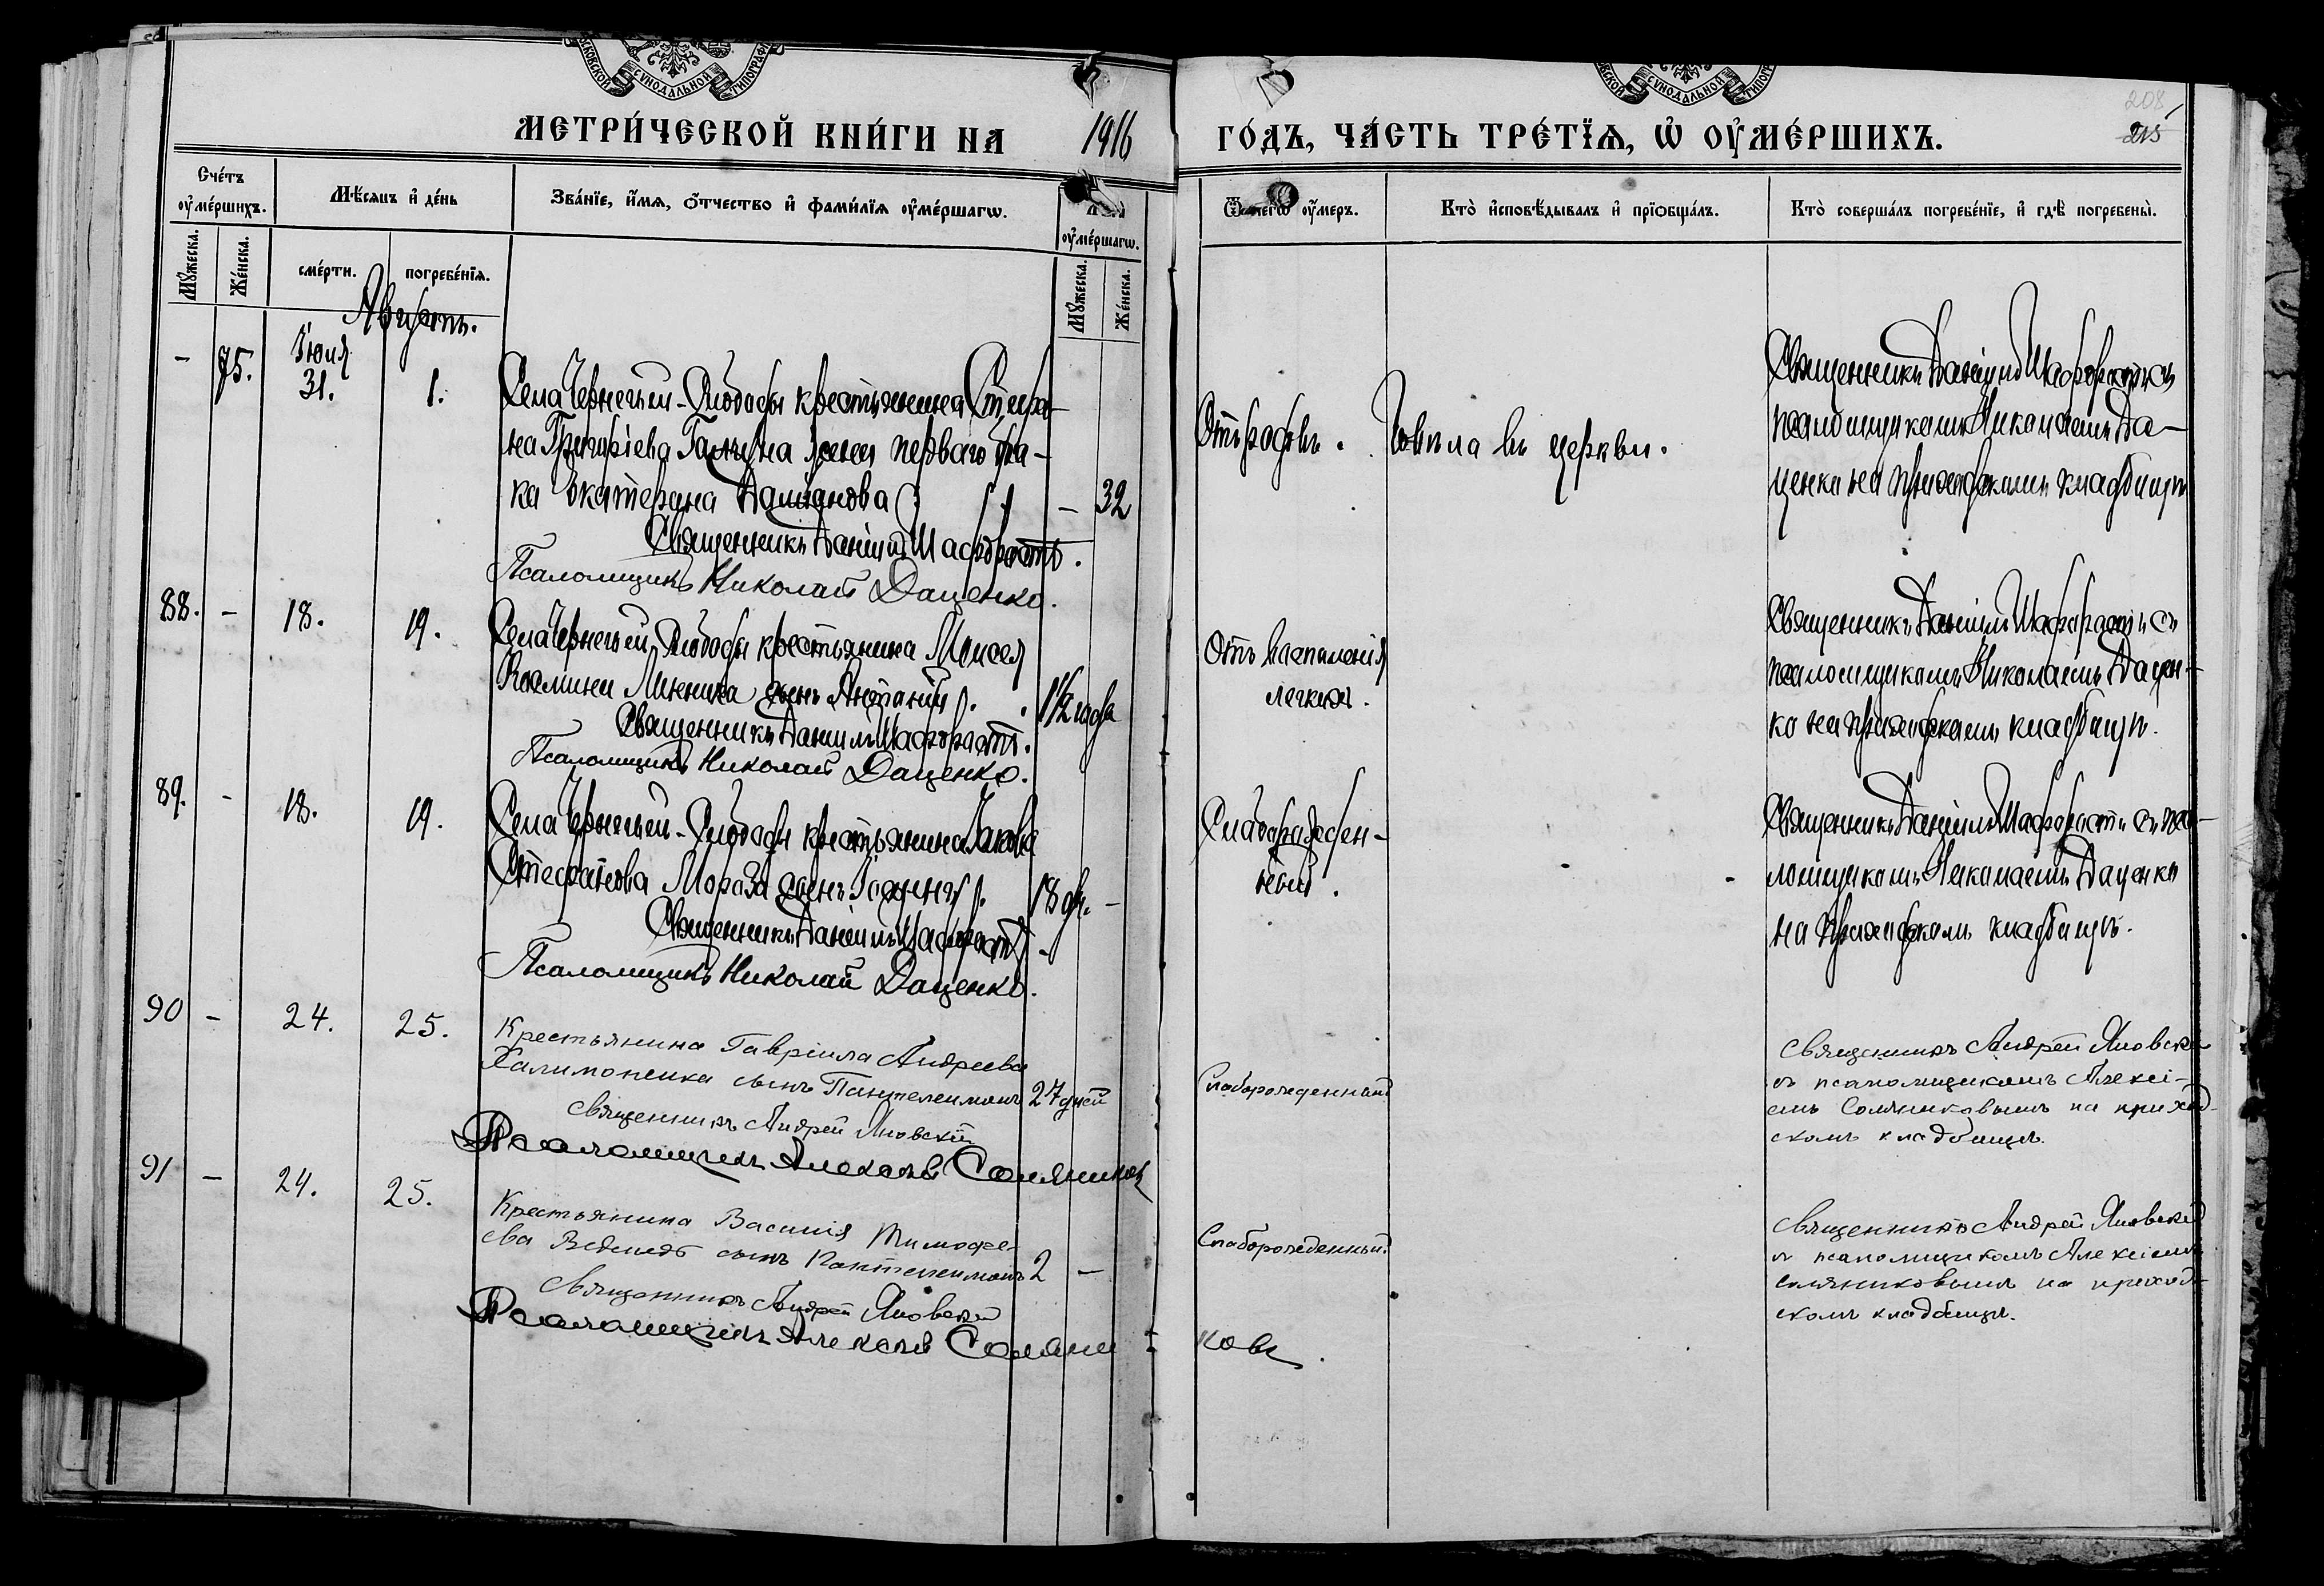 МОСКОВСКОЙ СѴНОДАЛЬНОЙ ТИПОГРАФІ
МЕТРИ́ЧЕСКОЙ КНИ́ГИ НА 1916 ГО́ДЪ, ЧА́СТЬ ТРЕ́ТЇѦ, Ѡ҆ ОУ҆МЕ́РШИХЪ.
208
215
Сче́тъ оу҆ме́ршихъ.
Мꙋ́жеска.
Же́нска.
Мѣ́сѧцъ и҆ де́нь
сме́рти.
погребе́нїѧ.
Зва́нїе, и҆́мѧ, ѻ҆́тчество и҆ фами́лїѧ оу҆ме́ршагѡ.
оу҆ме́ршагѡ.
Мꙋ́жеска.
Же́нска.
Ѿ чегѡ̀ оу҆́меръ.
Кто̀ и҆сповѣ́дывалъ и҆ прїѡбща́лъ.
Кто̀ соверша́лъ погребе́нїе, и҆ гдѣ̀ погребены̀.
Августъ.
- 75. Іюля 31. 1.
Села Чернечьей-Слободы крестьянина Стефа-
на Григоріева жена перваго бра-
ка Екатерина Даміанова - 32
Священникъ Даніилъ Шафоростъ.
Псаломщикъ Николай Даценко.
Отъ родовъ.
Говѣла въ церкви.
Священникъ Даніилъ Шафоростъ съ
псаломщикомъ Николаемъ Да-
ценко на приходскомъ кладбищѣ
88. - 18. 19.
Села Чернечьей Слободы крестьянина Моисея
Козмина Линника сынъ Антоній. 1½ года
Священникъ Даніилъ Шафоростъ.
Псаломщикъ Николай Даценко.
Отъ воспаленія
легкихъ.
Священникъ Даніилъ Шафоростъ съ
псаломщикомъ Николаемъ Дацен-
ко на приходскомъ кладбищѣ.
89. - 18. 19.
Села Чернечьей-Слободы крестьянина Іакова
Стефанова Мороза сынъ Іоаннъ 18 дн. -
Священникъ Даніилъ Шафоростъ.
Псаломщикъ Николай Даценко.
Слаборожден-
ный.
Священникъ Даніилъ Шафоростъ съ пса-
ломщикомъ Николаемъ Даценко
на приходскомъ кладбищѣ.
90 - 24. 25.
Крестьянина Гавріила Андреева
Халимоненка сынъ Пантелеимонъ 27 дней
Священникъ Андрей Яновскій
Псаломщикъ Алексѣй Соляников
Слаборожденный
Священникъ Андрей Яновскій
съ псаломщикомъ Алексі-
емъ Соляниковымъ на приход-
скомъ кладбищѣ.
91 - 24. 25.
Крестьянина Василія Тимофе-
ева Ведмедь сынъ Пантелеимонъ 2 -
Священникъ Андрей Яновскій
Псаломщикъ Алексѣй Соляни-
ковъ.
Слаборожденный.
Священникъ Андрей Яновскій
съ псаломщикомъ Алексіемъ
Соляниковымъ на приход-
скомъ кладбищѣ.